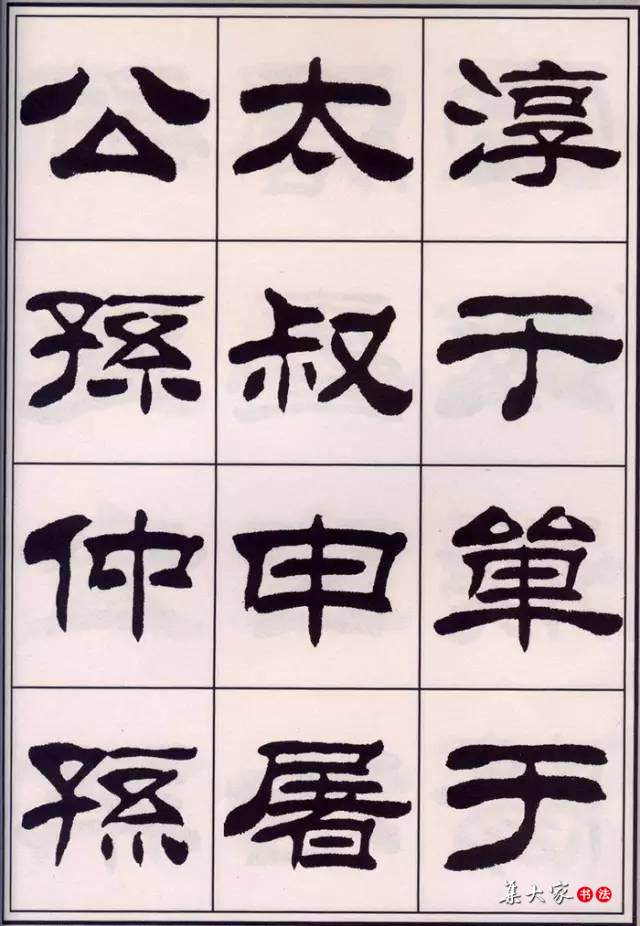 淳于單于
太叔申屠
公孫仲孫
集大家书法